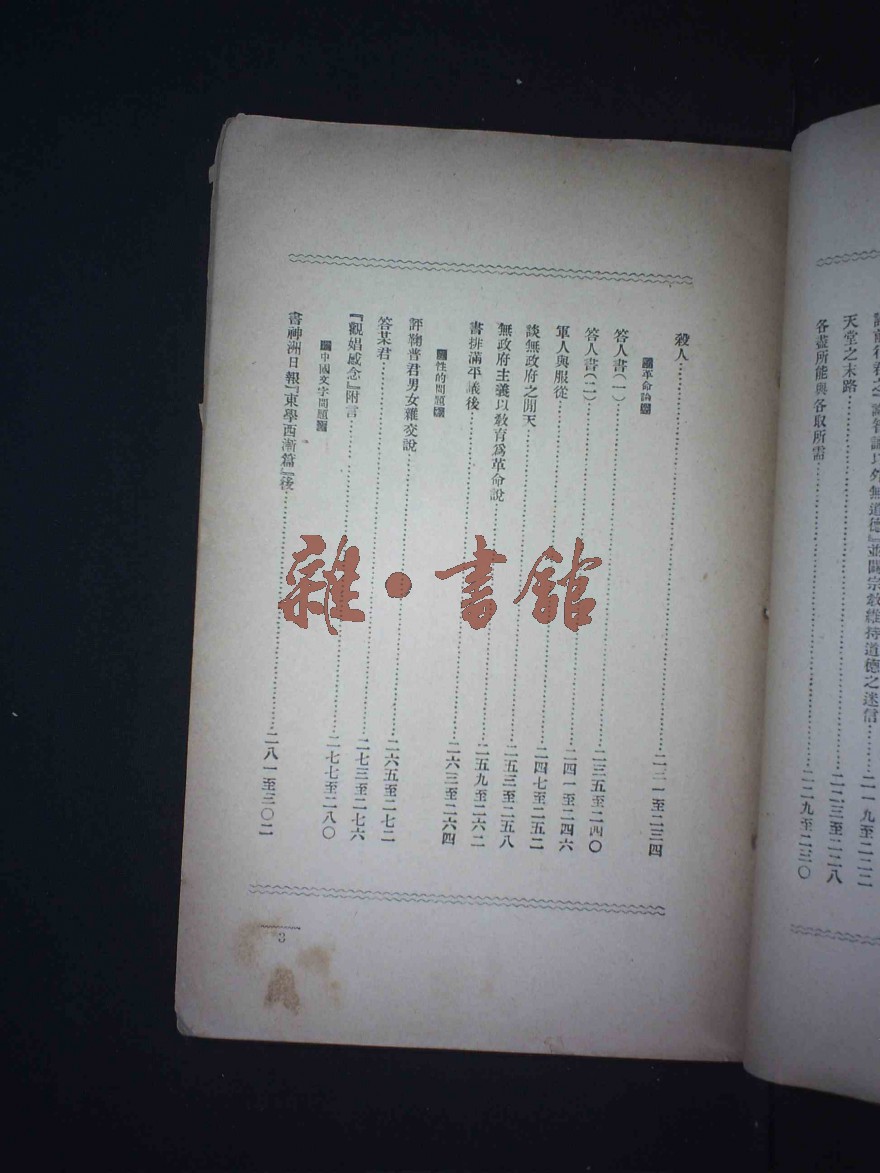 之『論智識以外無道德』並闢宗教維持道德之迷信………二一九至二二二
天堂之末路………二二三至二二八
各盡所能與各取所需………二二九至二三〇
殺人………二三一至二三四
革命論
答人書(一)………二三五至二四〇
答人書(二)………二四一至二四六
軍人與服從………二四七至二五二
談無政府之閒天………二五三至二五八
無政府主義以教育爲革命說………二五九至二六二
書排滿平議後………二六三至二六四
性的問題
評鞠普君男女雜交說………二六五至二七二
答某君………二七三至二七六
『觀娼感念』附言………二七七至二八〇
中國文字問題
書神洲日報『東學西漸篇』後………二八一至三〇二
3
雜·書館